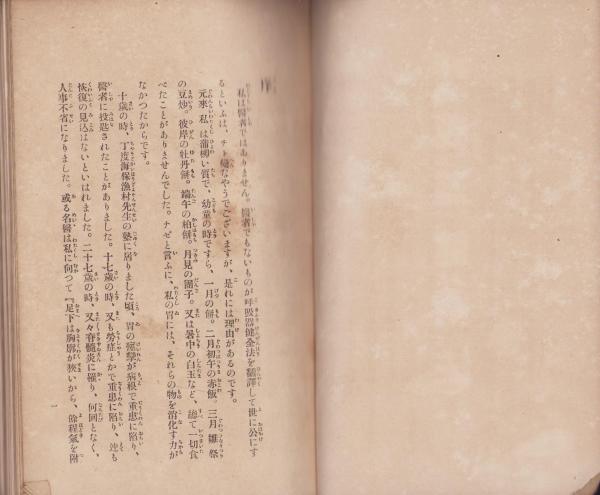 序
私は醫者ではありません。醫者でもないものが呼吸器健全法を飜譯して世に公にす
るといふは、チト變なやうでございますが、是れには理由があるのです。
元來私は蒲柳い質で、幼童の時ですら、一月の餅。二月初午の赤飯。三月雛祭
の豆炒。彼岸の牡丹餅。端午の柏餅。月見の團子。又は暑中の白玉など、總て一切食
べたことがありませんでした。ナゼと言ふに、私の胃には、それらの物を消化す力が
なかつたからです。
十歲の時、丁度海保漁村先生の塾に居りました頃、胃の痙攣が病根で重患に陷り、
醫者に投匙されたことがありました。十七歲の時、又も勞症とかで重患に陷り、迚も
恢復の見込はないといはれました。二十七歲の時、又々脊髓炎に罹り、何回となく、
人事不省になりました。或る名醫は私に向つて『足下は胸廓が狹いから、餘程氣を附
一